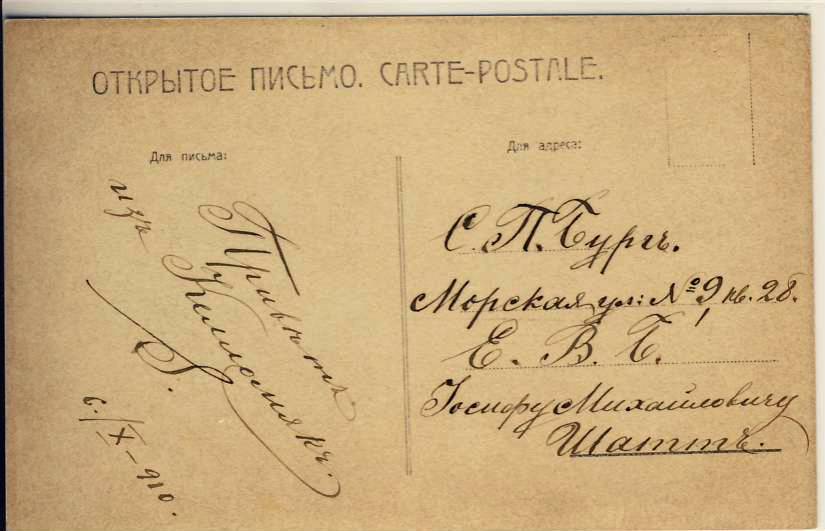 ОТКРЫТОЕ ПИСЬМО. CARTE-POSTALE.
Для письма:
Привѣтъ
изъ Келломякъ.
6/X–910.
Для адреса:
С. П. Бургъ.
Морская ул: № 9, кв. 28.
Е. В. Б.
Іосифу Михайловичу
Шаттъ.